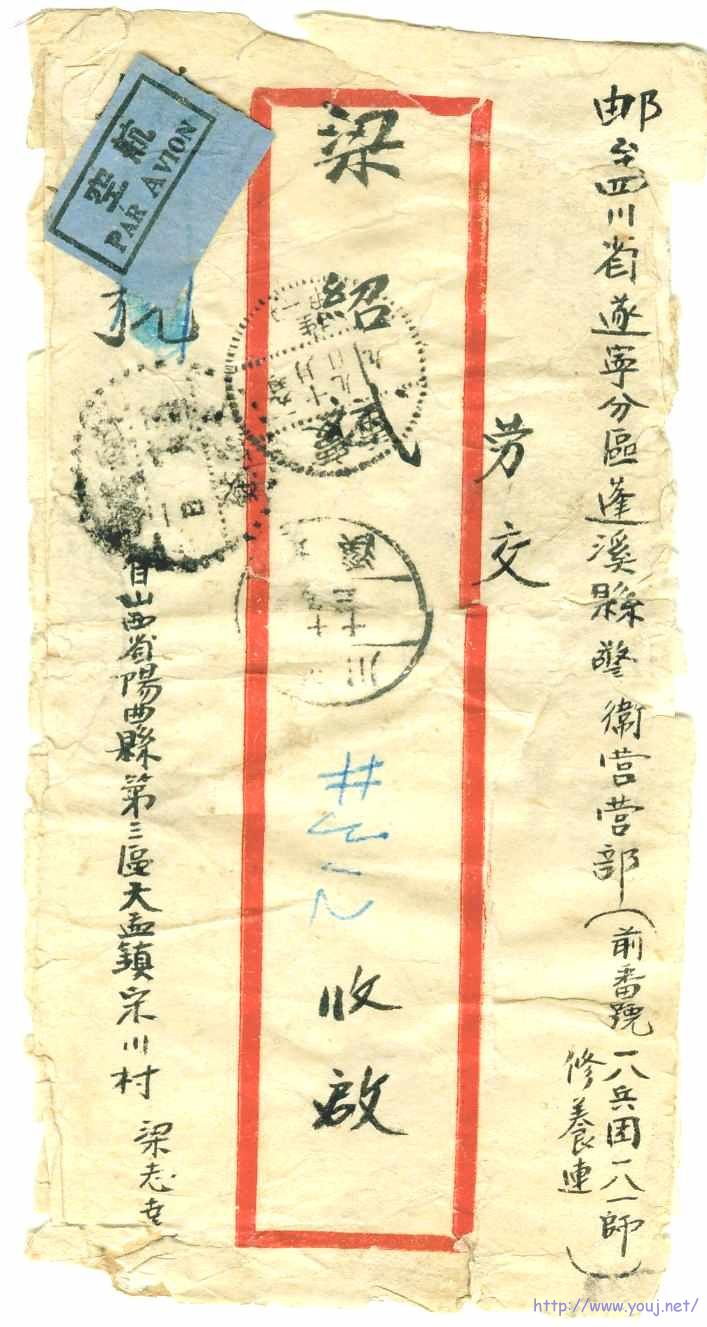 邮至四川省遂寧分區蓬溪縣警衛营营部(前番號一八兵团一八一師
修養連)
劳交
梁紹武 收啟
航空
PAR AVION
自山西省陽曲縣第三區大盂鎮宋川村 梁志
http://www.youj.net/